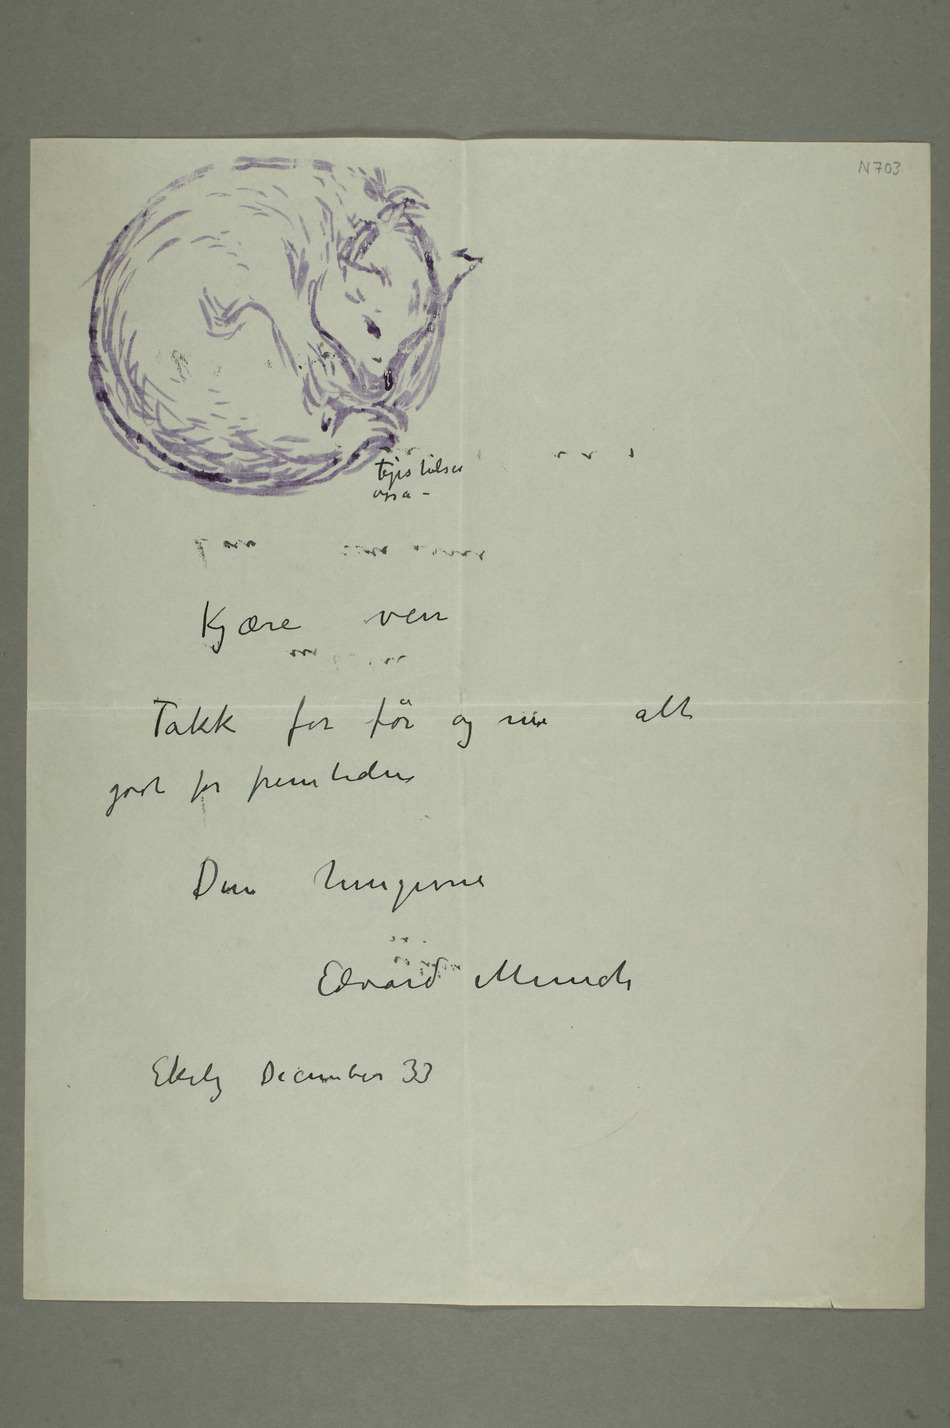 N703
Kjære ven
Takk for før og nu alt
godt for fremtiden
Din hengivne
Edvard Munch
Ekely December 33